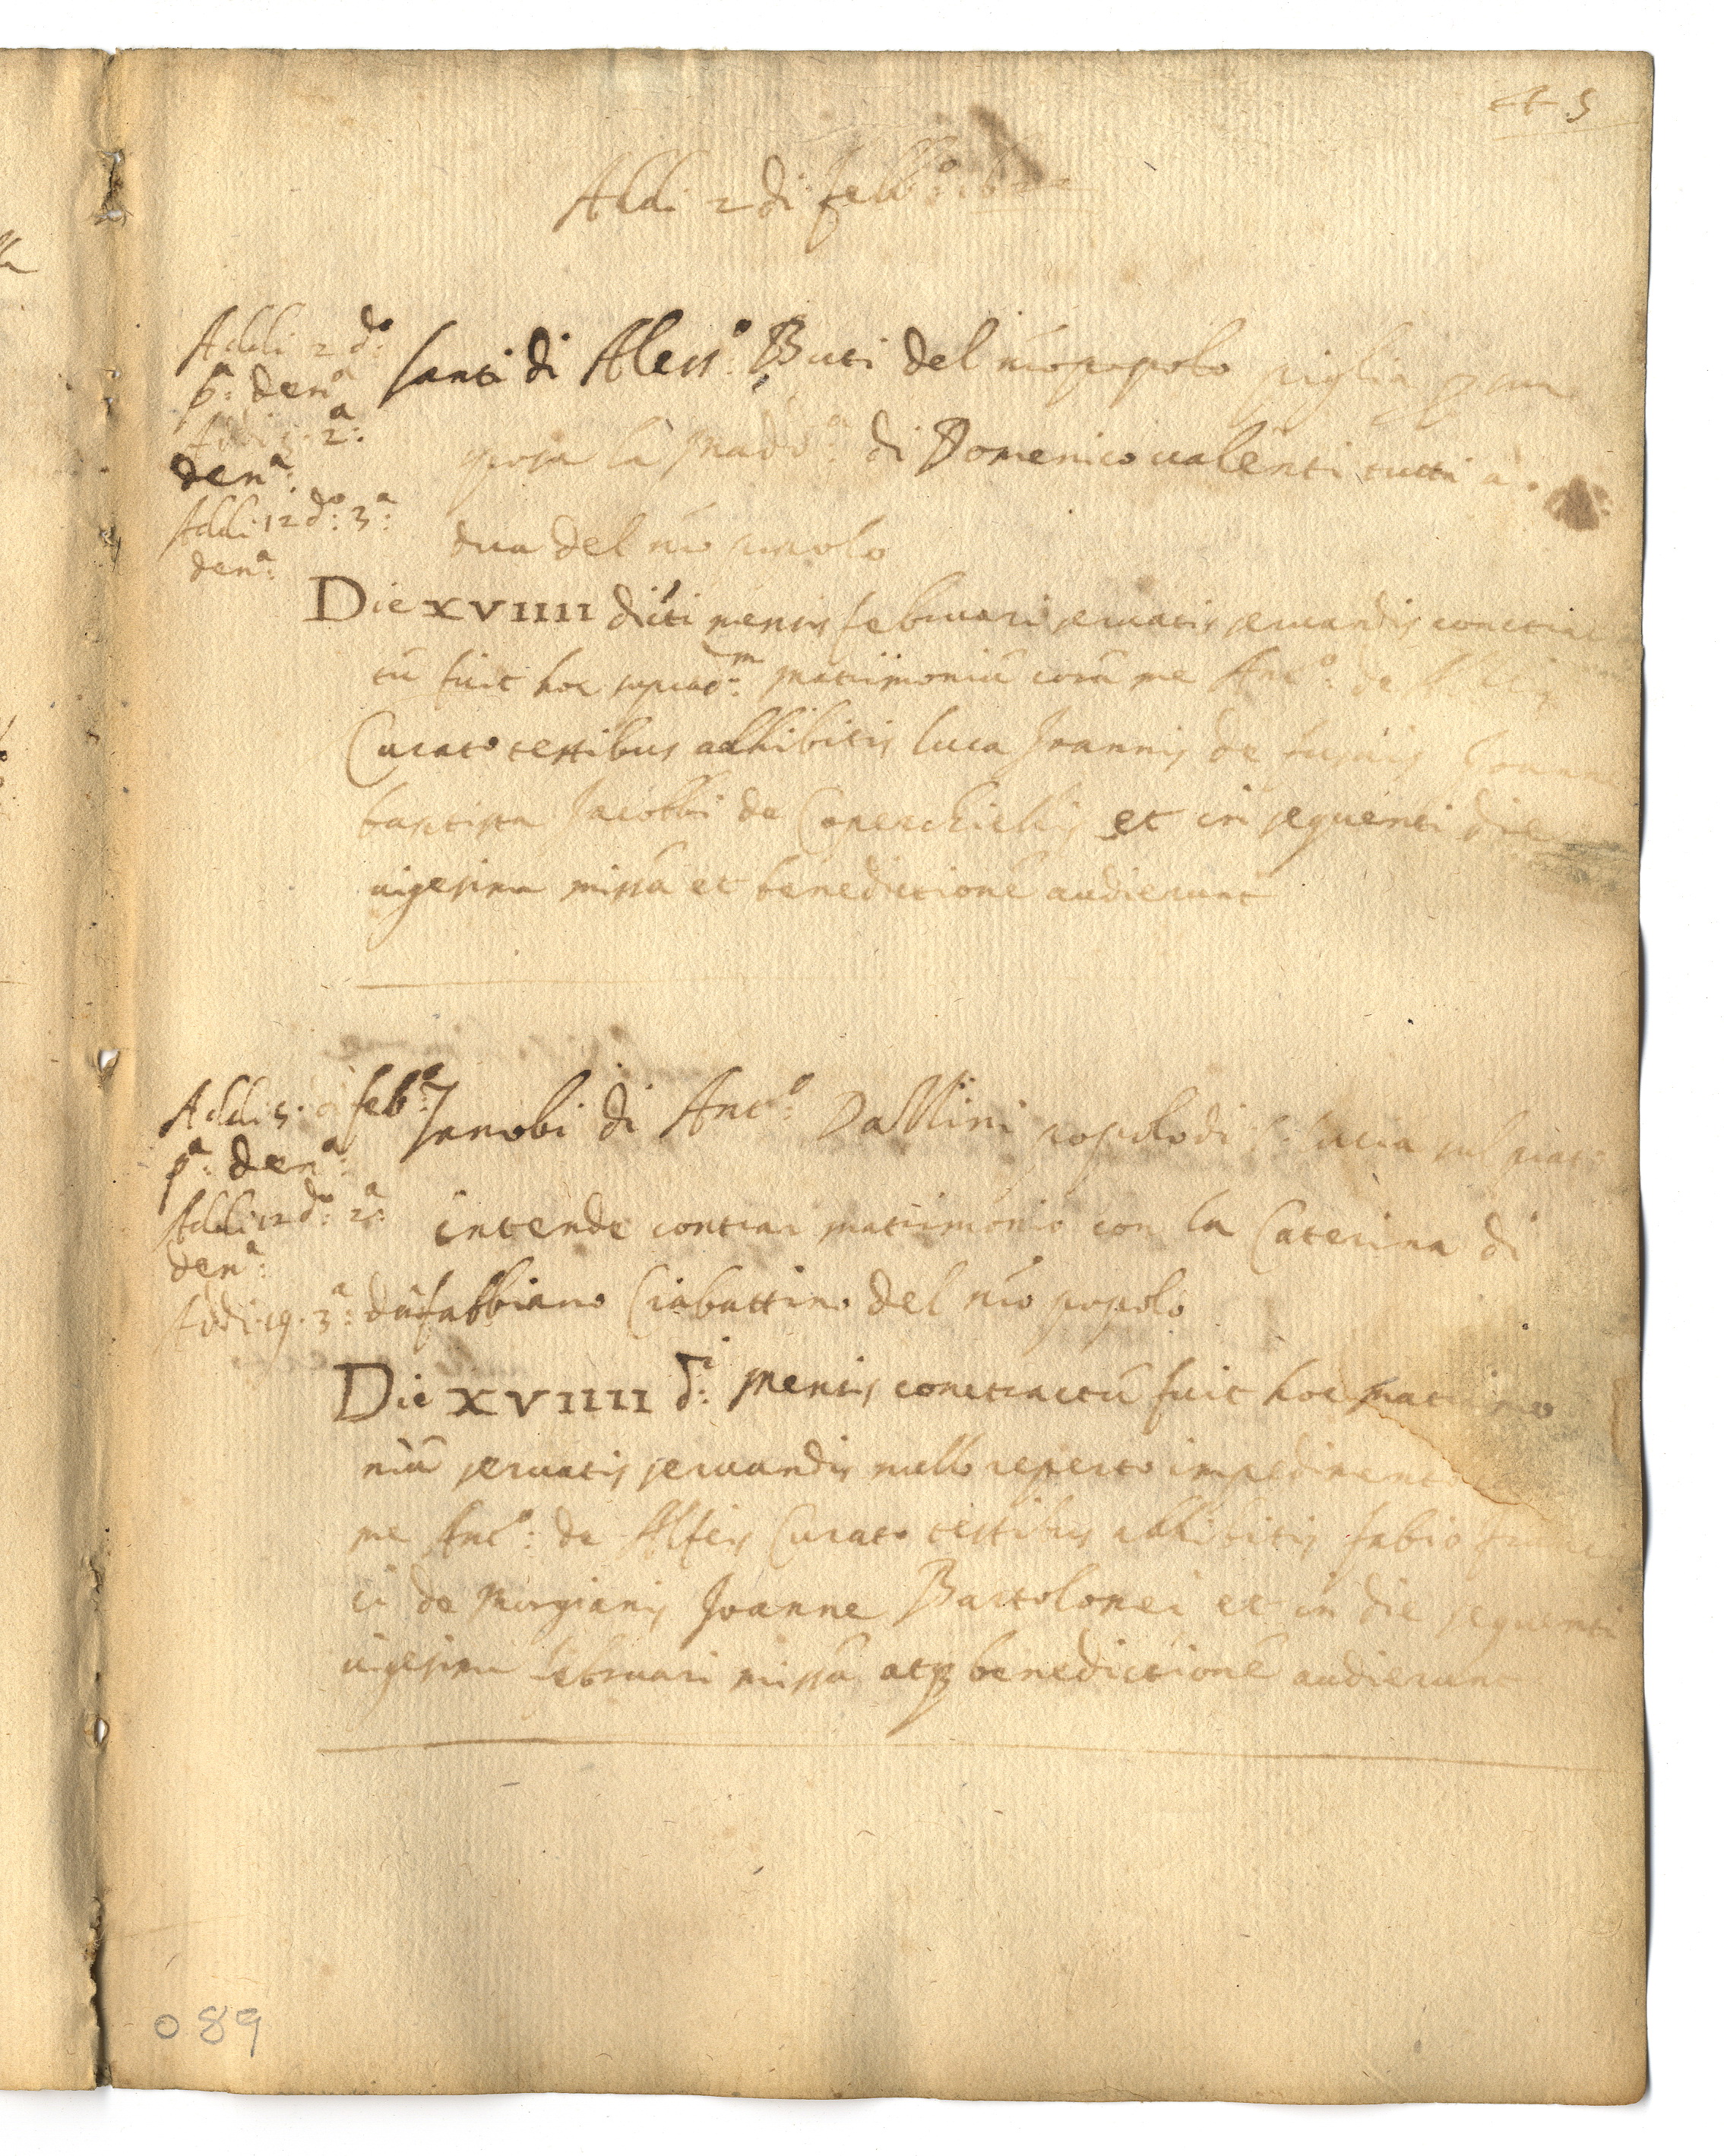 45
Addi 2 di febb.º 162
Addi 2 d.º
p.ª den.ª
2.ª
den.ª
Addi 12 d.º 3.ª
den.ª
Santi di Aless.º Buti del nr̃o popolo piglia p
sposa la Madd.ª di Domenico Valenti tutti a
dua del nr̃o popolo
Die XVIIII dicti mensis februari servatis servandis contrac
tũ fuit hoc suprad.m matrimoniũ corã me Ant.º de Alfeis
Curato testibus adhibitis luca Joannis de Joanne
baptista Jacobbi de et in sequenti die
vigesima missã et benedictionẽ audierunt
Addi 5 di feb.º
p.ª den.ª
Addi 12 d.º 2.ª
den.ª
Addi 19. 3.ª
Janobi di Ant.º Dallini popolo di S. lucia sul prat
intende contrar matrimonio con la Caterina di
fabbiano Ciabattino del nr̃o popolo
Die XVIIII d.i Mensis contractũ fuit hoc matrimo
niũ servatis servandis nullo reperto impedimento
me Ant.º de Alfeis Curato testibus adhibitis fabio franci
ci de Joanne Bartolomei et in die sequenti
vigesima februari missã atq benedictionẽ audierunt
089